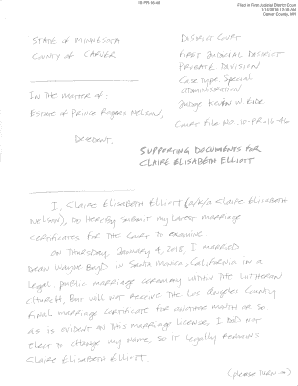 10-PR-16-46
Filed in First Judicial District Court
1/12/2018 10:18 AM
Carver County, MN
STATE OF MINNESOTA
COUNTY OF CARVER
DISTRICT COURT
FIRST JUDICIAL DISTRICT
PROBATE DIVISION
CASE TYPE: SPECIAL
ADMINISTRATION
JUDGE KEVIN W. EIDE
IN THE MATTER OF:
ESTATE OF PRINCE ROGERS NELSON,
COURT FILE NO. 10-PR-16-46
DECEDENT.
SUPPORTING DOCUMENTS FOR
CLAIRE ELISABETH ELLIOTT
I, CLAIRE ELISABETH ELLIOTT (A/K/A CLAIRE ELISABETH
NELSON), DO HEREBY SUBMIT MY LATEST MARRIAGE
CERTIFICATES FOR THE COURT TO EXAMINE.
ON THURSDAY, JANUARY 4, 2018, I MARRIED
DEAN WAYNE BOYD IN SANTA MONICA, CALIFORNIA IN A
LEGAL PUBLIC MARRIAGE CEREMONY WITHIN THE LUTHERAN
CHURCH, BUT WILL NOT RECEIVE THE LOS ANGELES COUNTY
FINAL MARRIAGE CERTIFICATE FOR ANOTHER MONTH OR SO.
AS IS EVIDENT ON THIS MARRIAGE LICENSE, I DID NOT
ELECT TO CHANGE MY NAME, SO IT LEGALLY REMAINS
CLAIRE ELISABETH ELLIOTT.
(PLEASE TURN →)